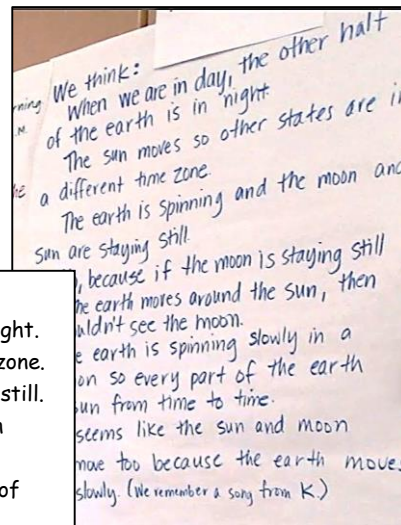 We think:
When we are in day, the other half
of the earth is in night.
The sun moves so other states are in
a different time zone.
The earth is spinning and the moon and
sun are staying still.
, because if the moon is staying still
he earth moves around the sun, then
uldn't see the moon.
e earth is spinning slowly in a
on so every part of the earth
un from time to time.
seems like the sun and moon
move too because the earth moves
slowly. (We remember a song from K.)
rning
M.
he
ght.
zone.
still.
of